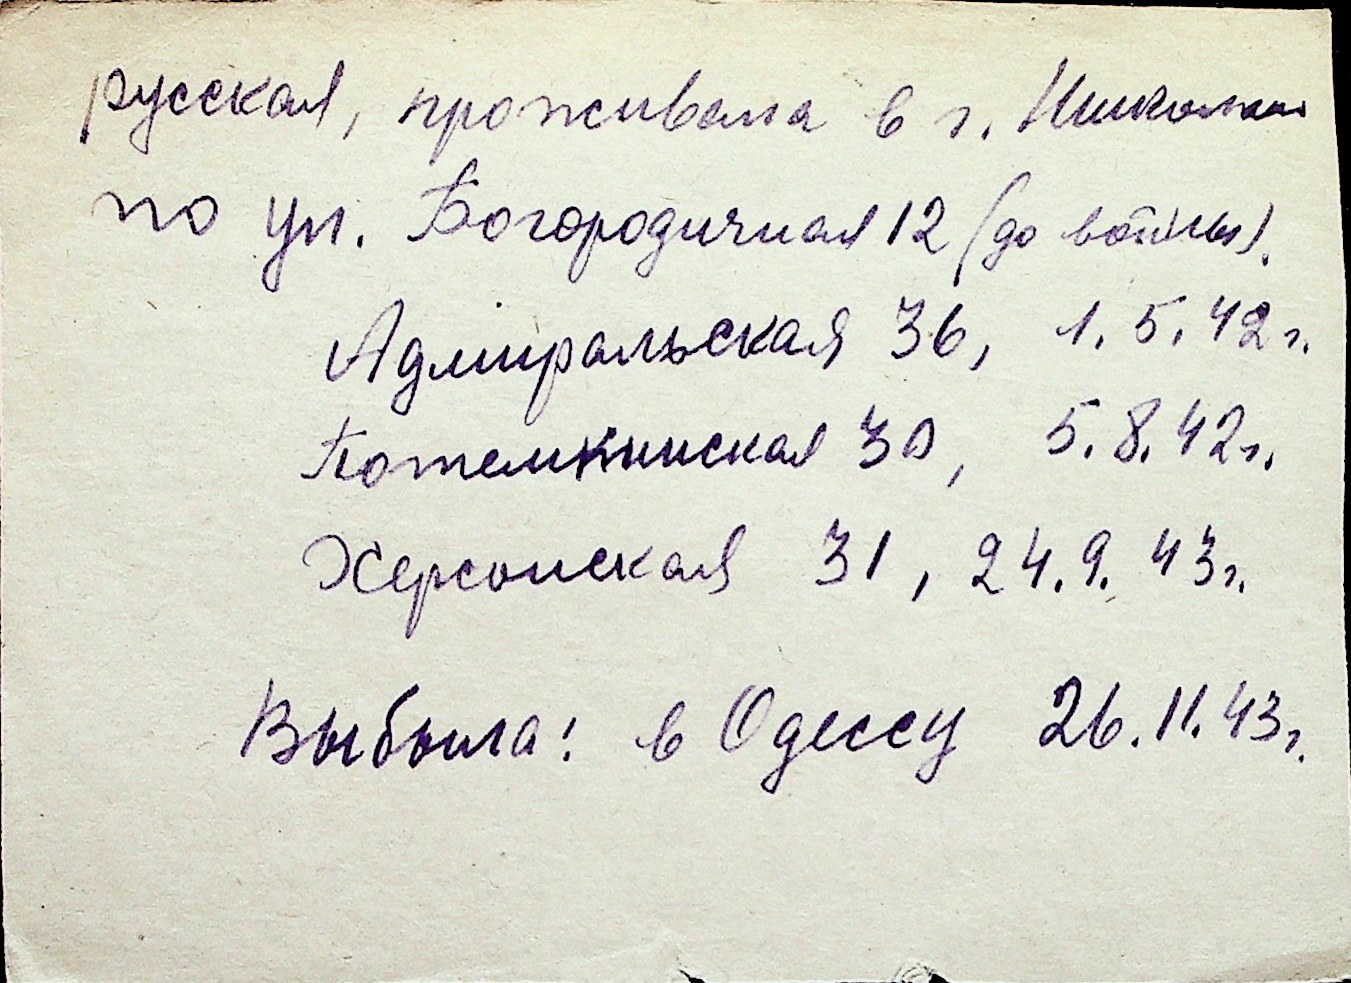 русская, проживала в г. Николаев
по ул. Богородичная 12 (до войны).
Адмиральская 36, 1.5.42 г.
Потемкинская 30, 5.8.42 г.
Херсонская 31, 24.9.43 г.
Выбыла: в Одессу 26.11.43 г.